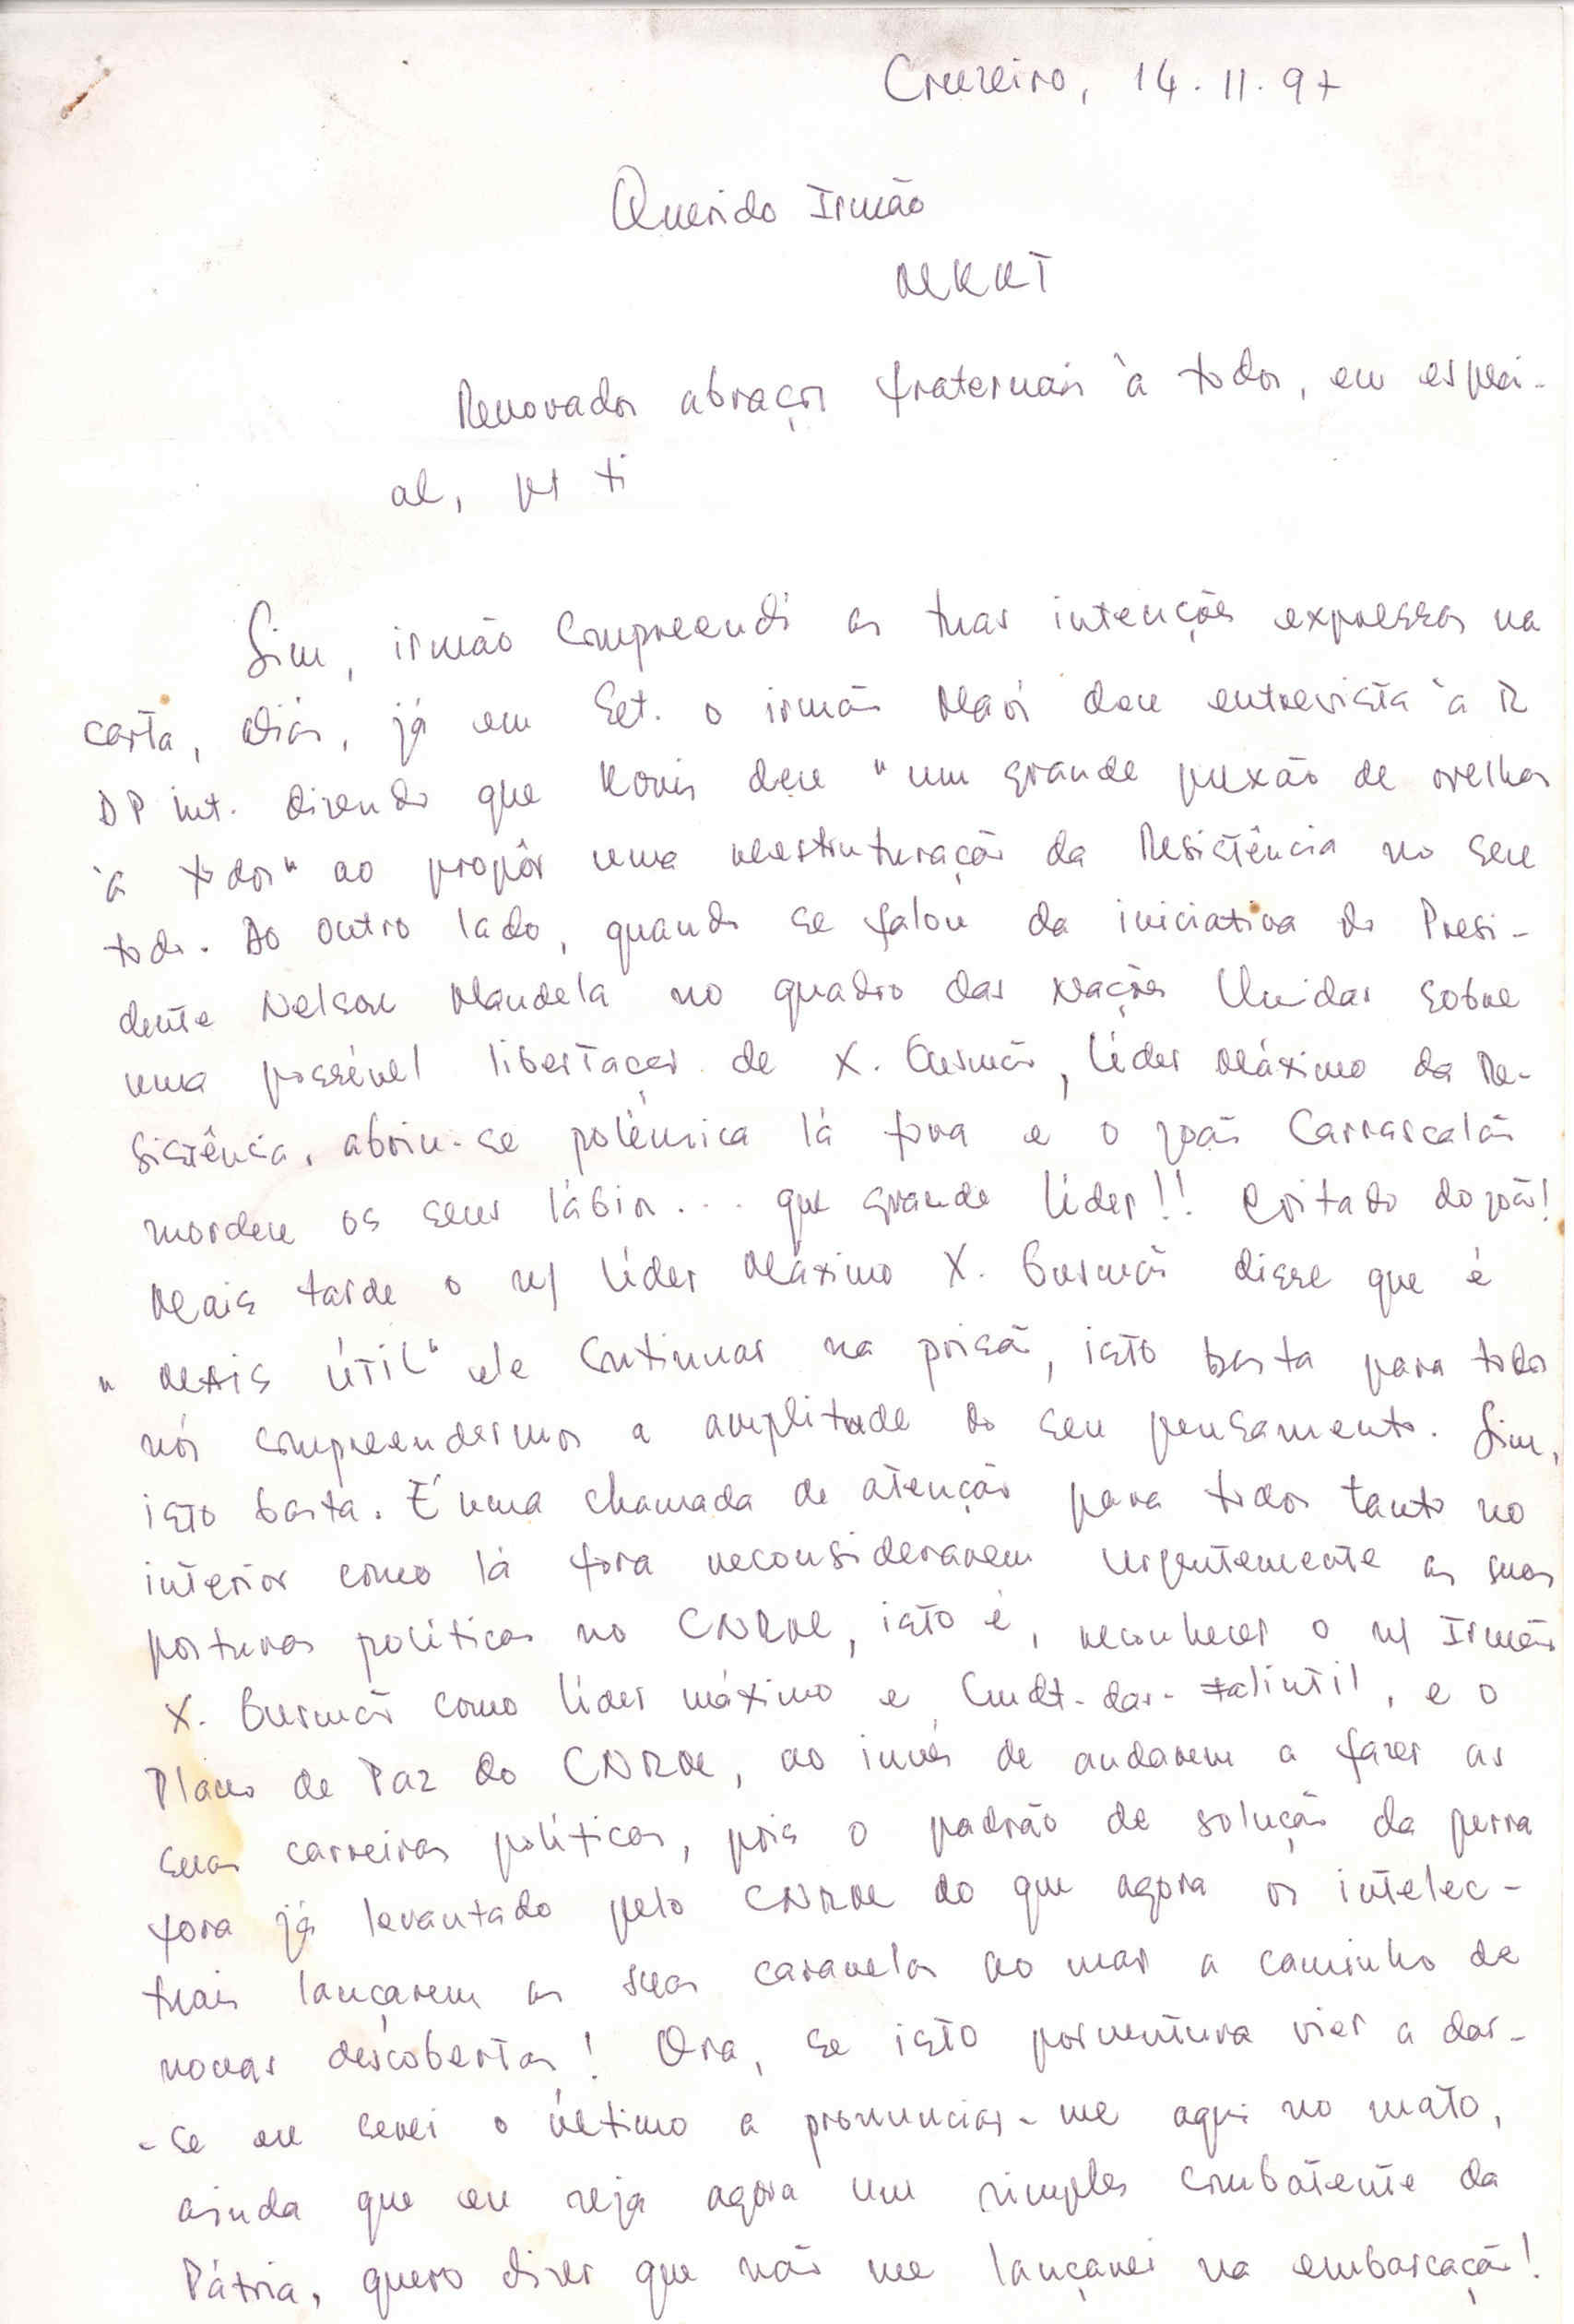 Cruzeiro, 14.11.97
Querido Irmão
Renovados abraços fraternais à todos, em especi-
al, p/ ti
Sim, irmão compreendi as tuas intenções expressas na
carta, aliás, já em Set. o irmão deu entrevista à R
DP int. dizendo que Konis deu "um grande puxão de orelhas
à todos" ao propôr uma reestruturação da Resistência no seu
todo. Ao outro lado, quando se falou da iniciativa do Presi-
dente Nelson Mandela no quadro das Nações Unidas sobre
uma possível libertaçao de X. Gusmão, Líder Máximo da Re-
sistência, abriu-se polémica lá fora e o joão Carrascalão
mordeu os seus lábios... que grande líder!! Coitado do joão!
Mais tarde o n/ Líder Máximo X. Gusmão disse que é
"MAIS ÚTIL" ele continuar na prisão, isto basta para todos
nós compreendermos a amplitude do seu pensamento. Sim,
isto basta. É uma chamada de atenção para todos tanto no
interior como lá fora reconsiderarem urgentemente as suas
posturas políticas no CNRM, isto é, reconhecer o n/ Irmão
X. Gusmão como líder máximo e Cmdt-das-Falintil, e o
Plano de Paz do CNRM, ao invés de andarem a fazer as
suas carreiras políticas, pois o padrão de solução da guerra
fora já levantado pelo CNRM do que agora os intelec-
tuais lançarem as suas caravelas ao mar a caminho de
novas descobertas! Ora, se isto porventura vier a dar-
-se eu serei o último a pronunciar-me aqui no mato,
ainda que eu seja agora um simples combatente da
Pátria, quero dizer que não me lançarei na embarcação!